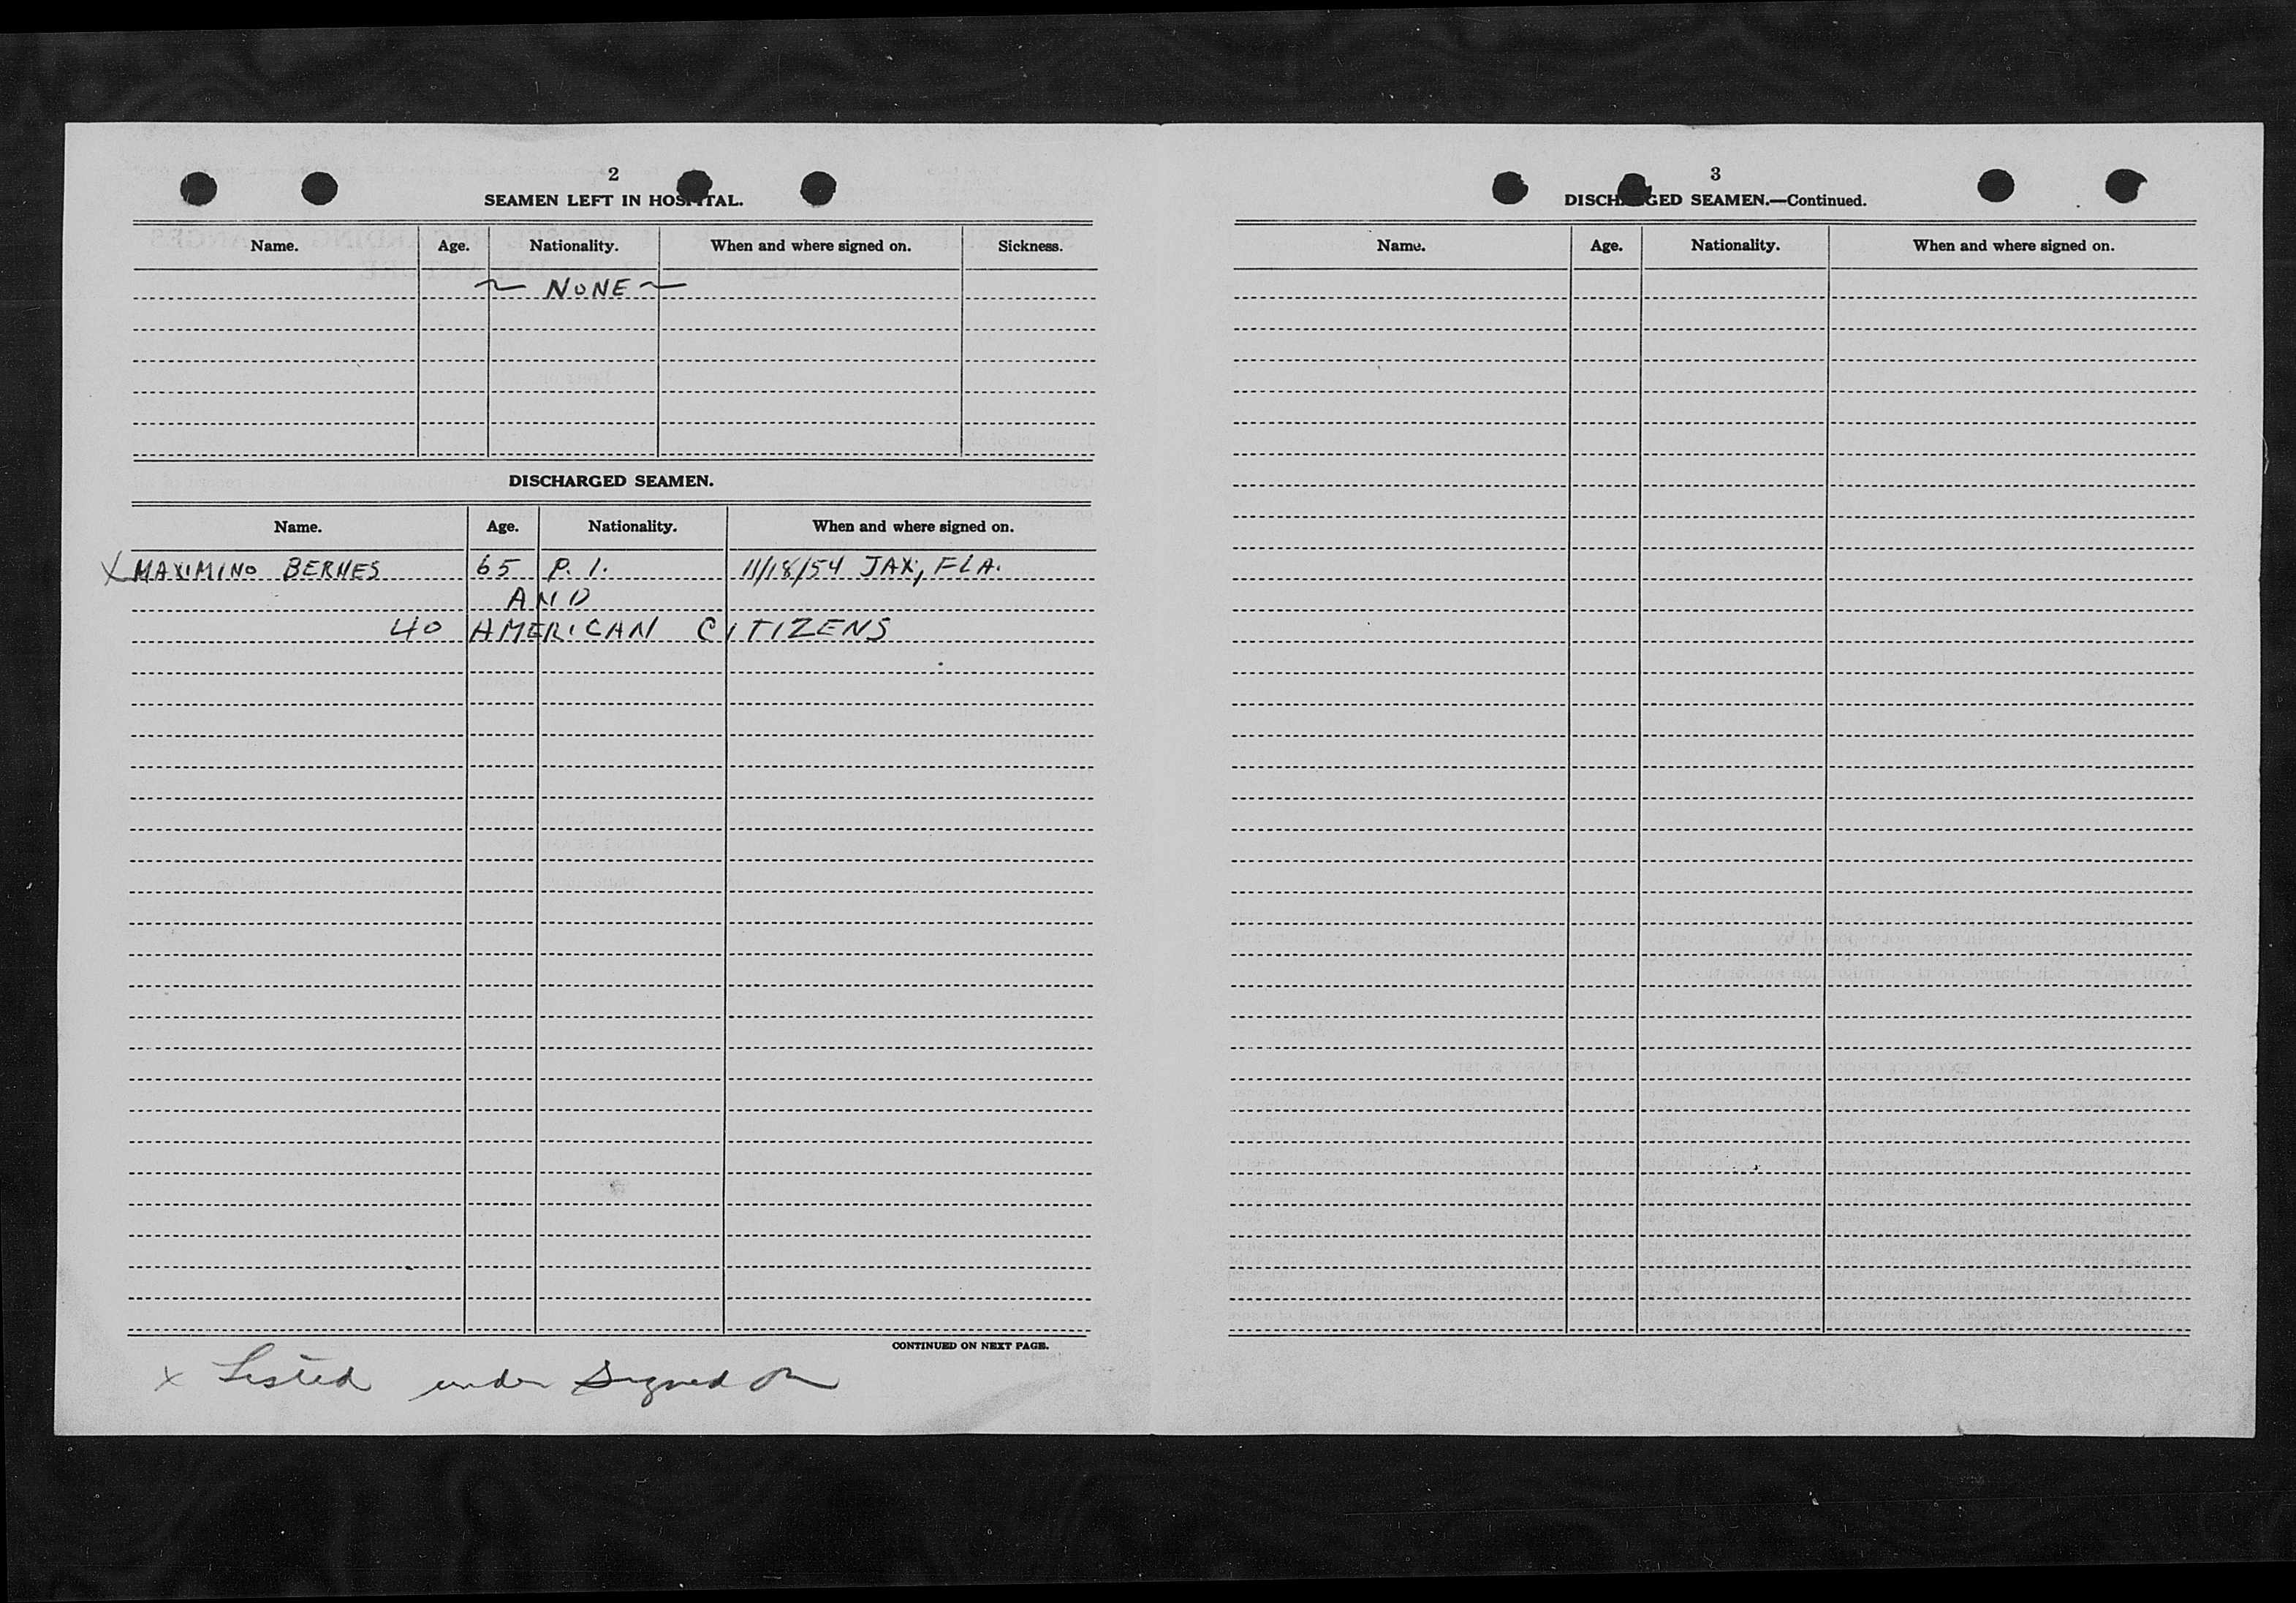 2
SEAMEN LEFT IN HOSPITAL.
Name. Age. Nationality. When and where signed on. Sickness.
~ NONE ~
DISCHARGED SEAMEN.
Name. Age. Nationality. When and where signed on.
X MAXIMINO BERNES 65 P. I. 11/18/54 JAX, FLA.
AND
40 AMERICAN CITIZENS
CONTINUED ON NEXT PAGE.
x Listed under Signed on
3
DISCHARGED SEAMEN.—Continued.
Name. Age. Nationality. When and where signed on.